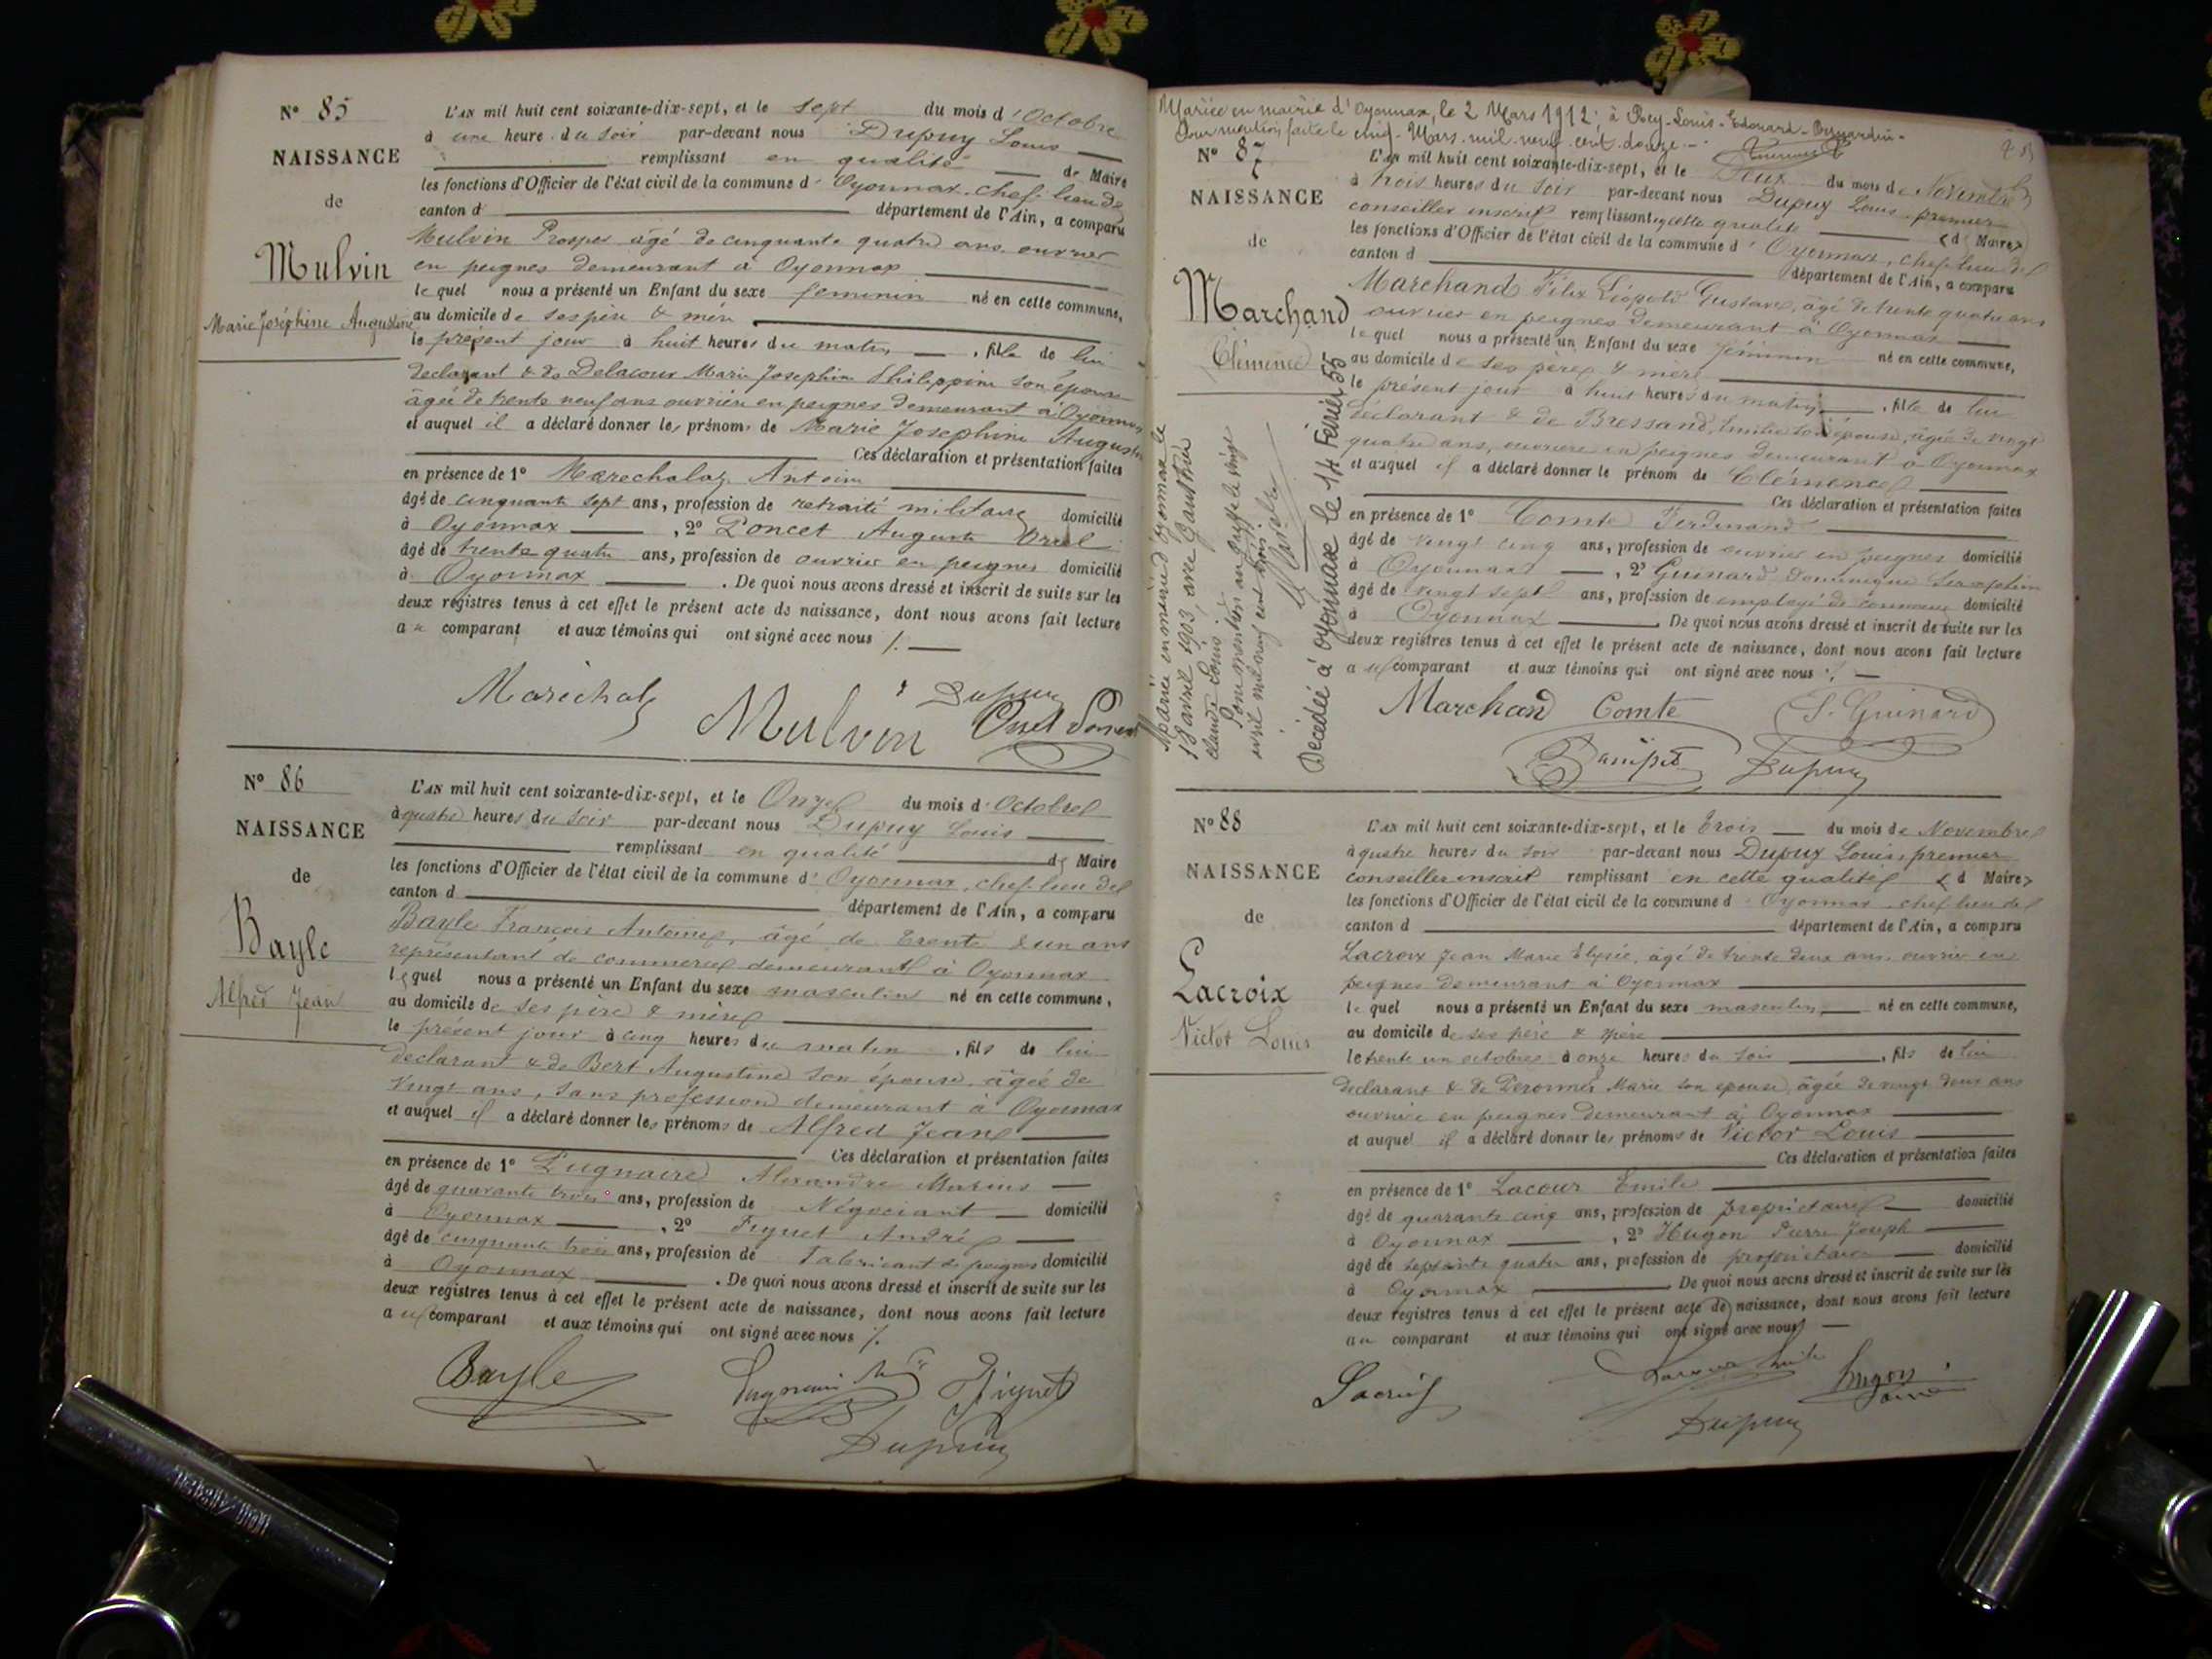 N° 85
NAISSANCE
de
Mulvin
Marie Joséphine Augustine
L'AN mil huit cent soixante-dix-sept, et le sept du mois d'Octobre
à une heure du soir par-devant nous Dupuy Louis
remplissant en qualité de Maire
les fonctions d'Officier de l'état civil de la commune d'Oyonnax, chef-lieu de
canton d département de l'Ain, a comparu
Mulvin Prosper âgé de cinquante quatre ans, ouvrier
en peignes demeurant à Oyonnax
lequel nous a présenté un Enfant du sexe feminin né en cette commune,
au domicile de ses père & mère
le présent jour à huit heures du matin, fille de lui
déclarant & de Delacour Marie Josephine Philippine son épouse
âgée de trente neuf ans ouvrière en peignes demeurant à Oyonnax
et auquel il a déclaré donner les prénoms de Marie Josephine Augustine
Ces déclaration et présentation faites
en présence de 1° Marechalaz Antoine
âgé de cinquante sept ans, profession de retraité militaire domicilié
à Oyonnax, 2° Poncet Auguste
âgé de trente quatre ans, profession de ouvrier en peignes domicilié
à Oyonnax. De quoi nous avons dressé et inscrit de suite sur les
deux registres tenus à cet effet le présent acte de naissance, dont nous avons fait lecture
au comparant et aux témoins qui ont signé avec nous /.
Mulvin Dupuy
N° 86
NAISSANCE
de
Bayle
Alfred Jean
L'AN mil huit cent soixante-dix-sept, et le Onze du mois d'Octobre
à quatre heures du soir par-devant nous Dupuy Louis
remplissant en qualité de Maire
les fonctions d'Officier de l'état civil de la commune d'Oyonnax, chef-lieu de
canton d département de l'Ain, a comparu
Bayle François Antoine, âgé de trente & un ans
représentant de commerce demeurant à Oyonnax
lequel nous a présenté un Enfant du sexe masculin né en cette commune,
au domicile de ses père & mère
le présent jour à cinq heures du matin, fils de lui
déclarant & de Bert Augustine son épouse, âgée de
vingt ans, sans profession demeurant à Oyonnax
et auquel il a déclaré donner les prénoms de Alfred Jean
Ces déclaration et présentation faites
en présence de 1° Pugnaire Alexandre Marius
âgé de quarante trois ans, profession de Négociant domicilié
à Oyonnax, 2° André
âgé de cinquante trois ans, profession de Fabricant de peignes domicilié
à Oyonnax. De quoi nous avons dressé et inscrit de suite sur les
deux registres tenus à cet effet le présent acte de naissance, dont nous avons fait lecture
au comparant et aux témoins qui ont signé avec nous /.
Bayle
Dupuy
Mariée en mairie d'Oyonnax, le 2 Mars 1912, à Rey-Louis-Edouard-
Pour mention faite le cinq Mars mil neuf cent douze
N° 87
NAISSANCE
de
Marchand
Clémence
Mariée en mairie d'Oyonnax le
18 avril 1903, avec
Claude Louis
Pour mention au greffe le vingt
avril mil neuf cent trois
Décédée à Oyonnax le 14 Février 55
L'AN mil huit cent soixante-dix-sept, et le Deux du mois de Novembre
à trois heures du soir par-devant nous Dupuy Louis premier
conseiller inscrit remplissant en cette qualité <d Maire>
les fonctions d'Officier de l'état civil de la commune d'Oyonnax, chef-lieu de
canton d département de l'Ain, a comparu
Marchand Félix Léopold Gustave, âgé de trente quatre ans
ouvrier en peignes demeurant à Oyonnax
lequel nous a présenté un Enfant du sexe féminin né en cette commune,
au domicile de ses père & mère
le présent jour à huit heures du matin, fille de lui
déclarant & de Bressand, son épouse, âgée de vingt
quatre ans, ouvrière en peignes demeurant à Oyonnax
et auquel il a déclaré donner le prénom de Clémence
Ces déclaration et présentation faites
en présence de 1° Comte Ferdinand
âgé de vingt cinq ans, profession de ouvrier en peignes domicilié
à Oyonnax, 2° Guinard Dominique
âgé de vingt sept ans, profession de employé de commerce domicilié
à Oyonnax. De quoi nous avons dressé et inscrit de suite sur les
deux registres tenus à cet effet le présent acte de naissance, dont nous avons fait lecture
au comparant et aux témoins qui ont signé avec nous /.
Marchand Comte Guinard
Dupuy
N° 88
NAISSANCE
de
Lacroix
Victor Louis
L'AN mil huit cent soixante-dix-sept, et le Trois du mois de Novembre
à quatre heures du soir par-devant nous Dupuy Louis, premier
conseiller inscrit remplissant en cette qualité <d Maire>
les fonctions d'Officier de l'état civil de la commune d'Oyonnax, chef-lieu de
canton d département de l'Ain, a comparu
Lacroix Jean Marie Elysée, âgé de trente deux ans, ouvrier en
peignes demeurant à Oyonnax
lequel nous a présenté un Enfant du sexe masculin né en cette commune,
au domicile de ses père & mère
le trente un octobre à onze heures du soir, fils de lui
déclarant & de Marie son épouse, âgée de vingt deux ans
ouvrière en peignes demeurant à Oyonnax
et auquel il a déclaré donner les prénoms de Victor Louis
Ces déclaration et présentation faites
en présence de 1° Lacour Emile
âgé de quarante cinq ans, profession de propriétaire domicilié
à Oyonnax, 2° Hugon Pierre Joseph
âgé de septante quatre ans, profession de propriétaire domicilié
à Oyonnax. De quoi nous avons dressé et inscrit de suite sur les
deux registres tenus à cet effet le présent acte de naissance, dont nous avons fait lecture
au comparant et aux témoins qui ont signé avec nous
Lacroix Hugon
Dupuy